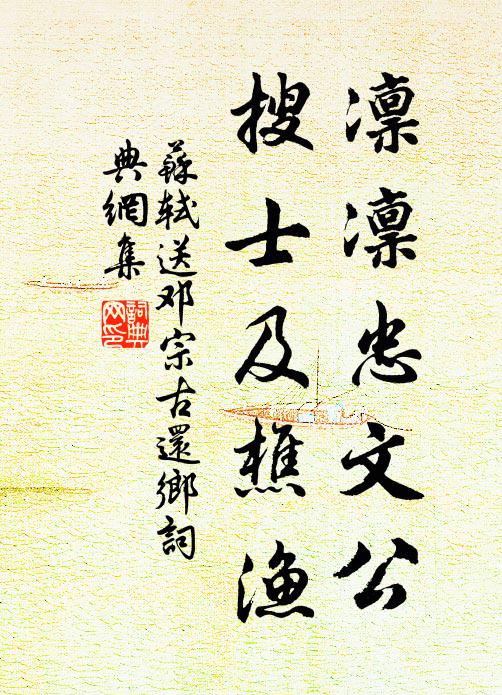 凛凛忠文公
搜士及樵漁
蘇軾送邓宗古還鄉詞
典網集
詞典
网印